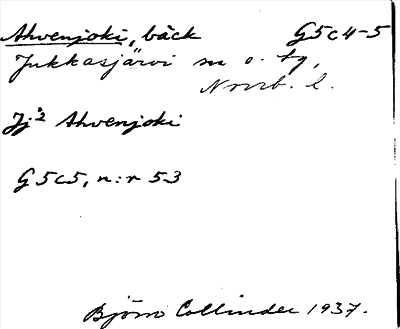 Ahvenjoki, bäck G5c4-5
Jukkasjärvi sn o. tg,
Norrb. l.
Ahvenjoki
G5c5, n:r 53
Björn Collinder 1937.